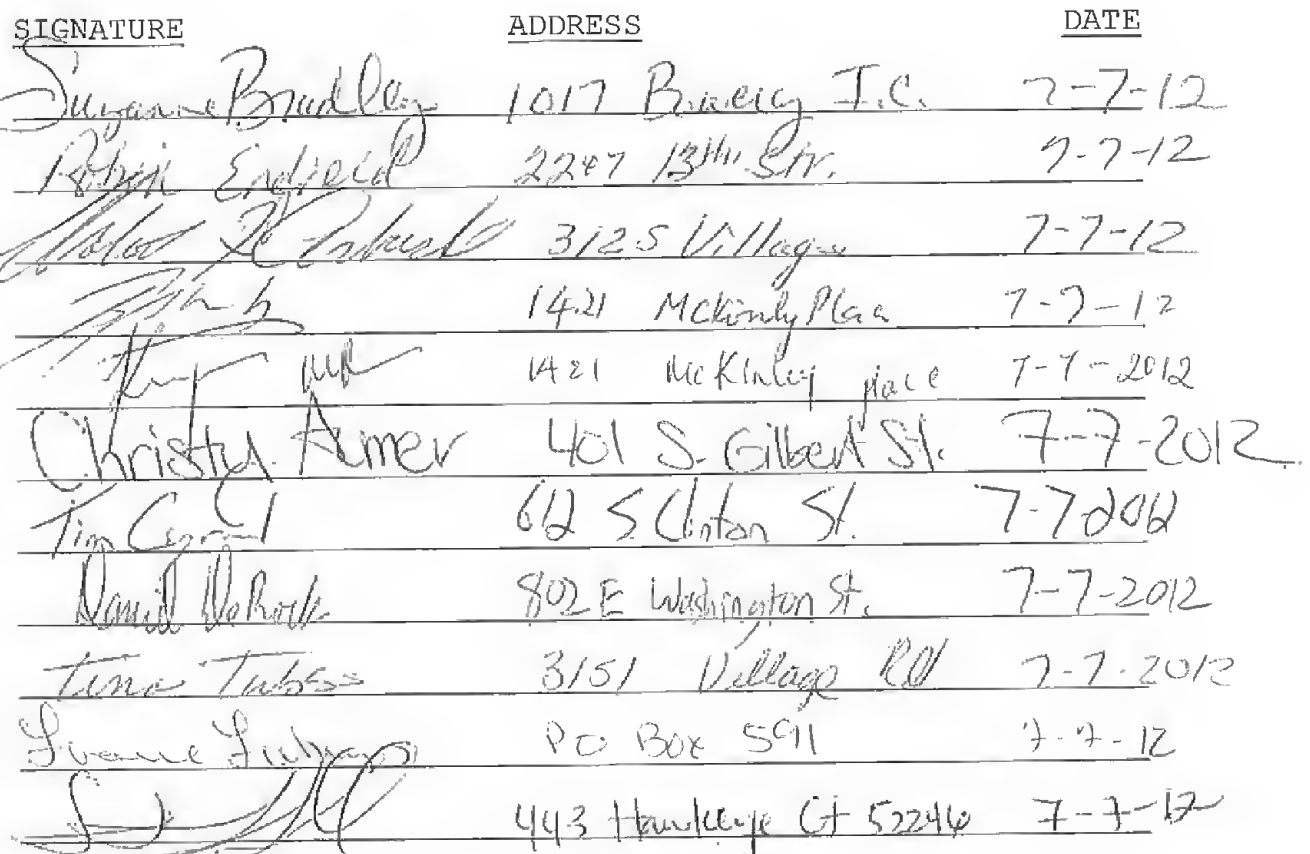 SIGNATURE ADDRESS DATE
Suzanne Bradley 1017 I.C. 7-7-12
Robin Enfield 2247 13th Str. 7-7-12
312 S Village 7-7-12
1421 McKinly Plaa 7-7-12
1421 McKinley place 7-7-2012
Christy Aumer 401 S. Gilbert St. 7-7-2012
Tim 612 S Clinton St. 7-7-2012
Daniel DeRock 802 E Washington St. 7-7-2012
Tina Tubbs 3151 Village Rd 7-7-2012
PO Box 591 7-7-12
443 Hawkeye Ct 52246 7-7-12